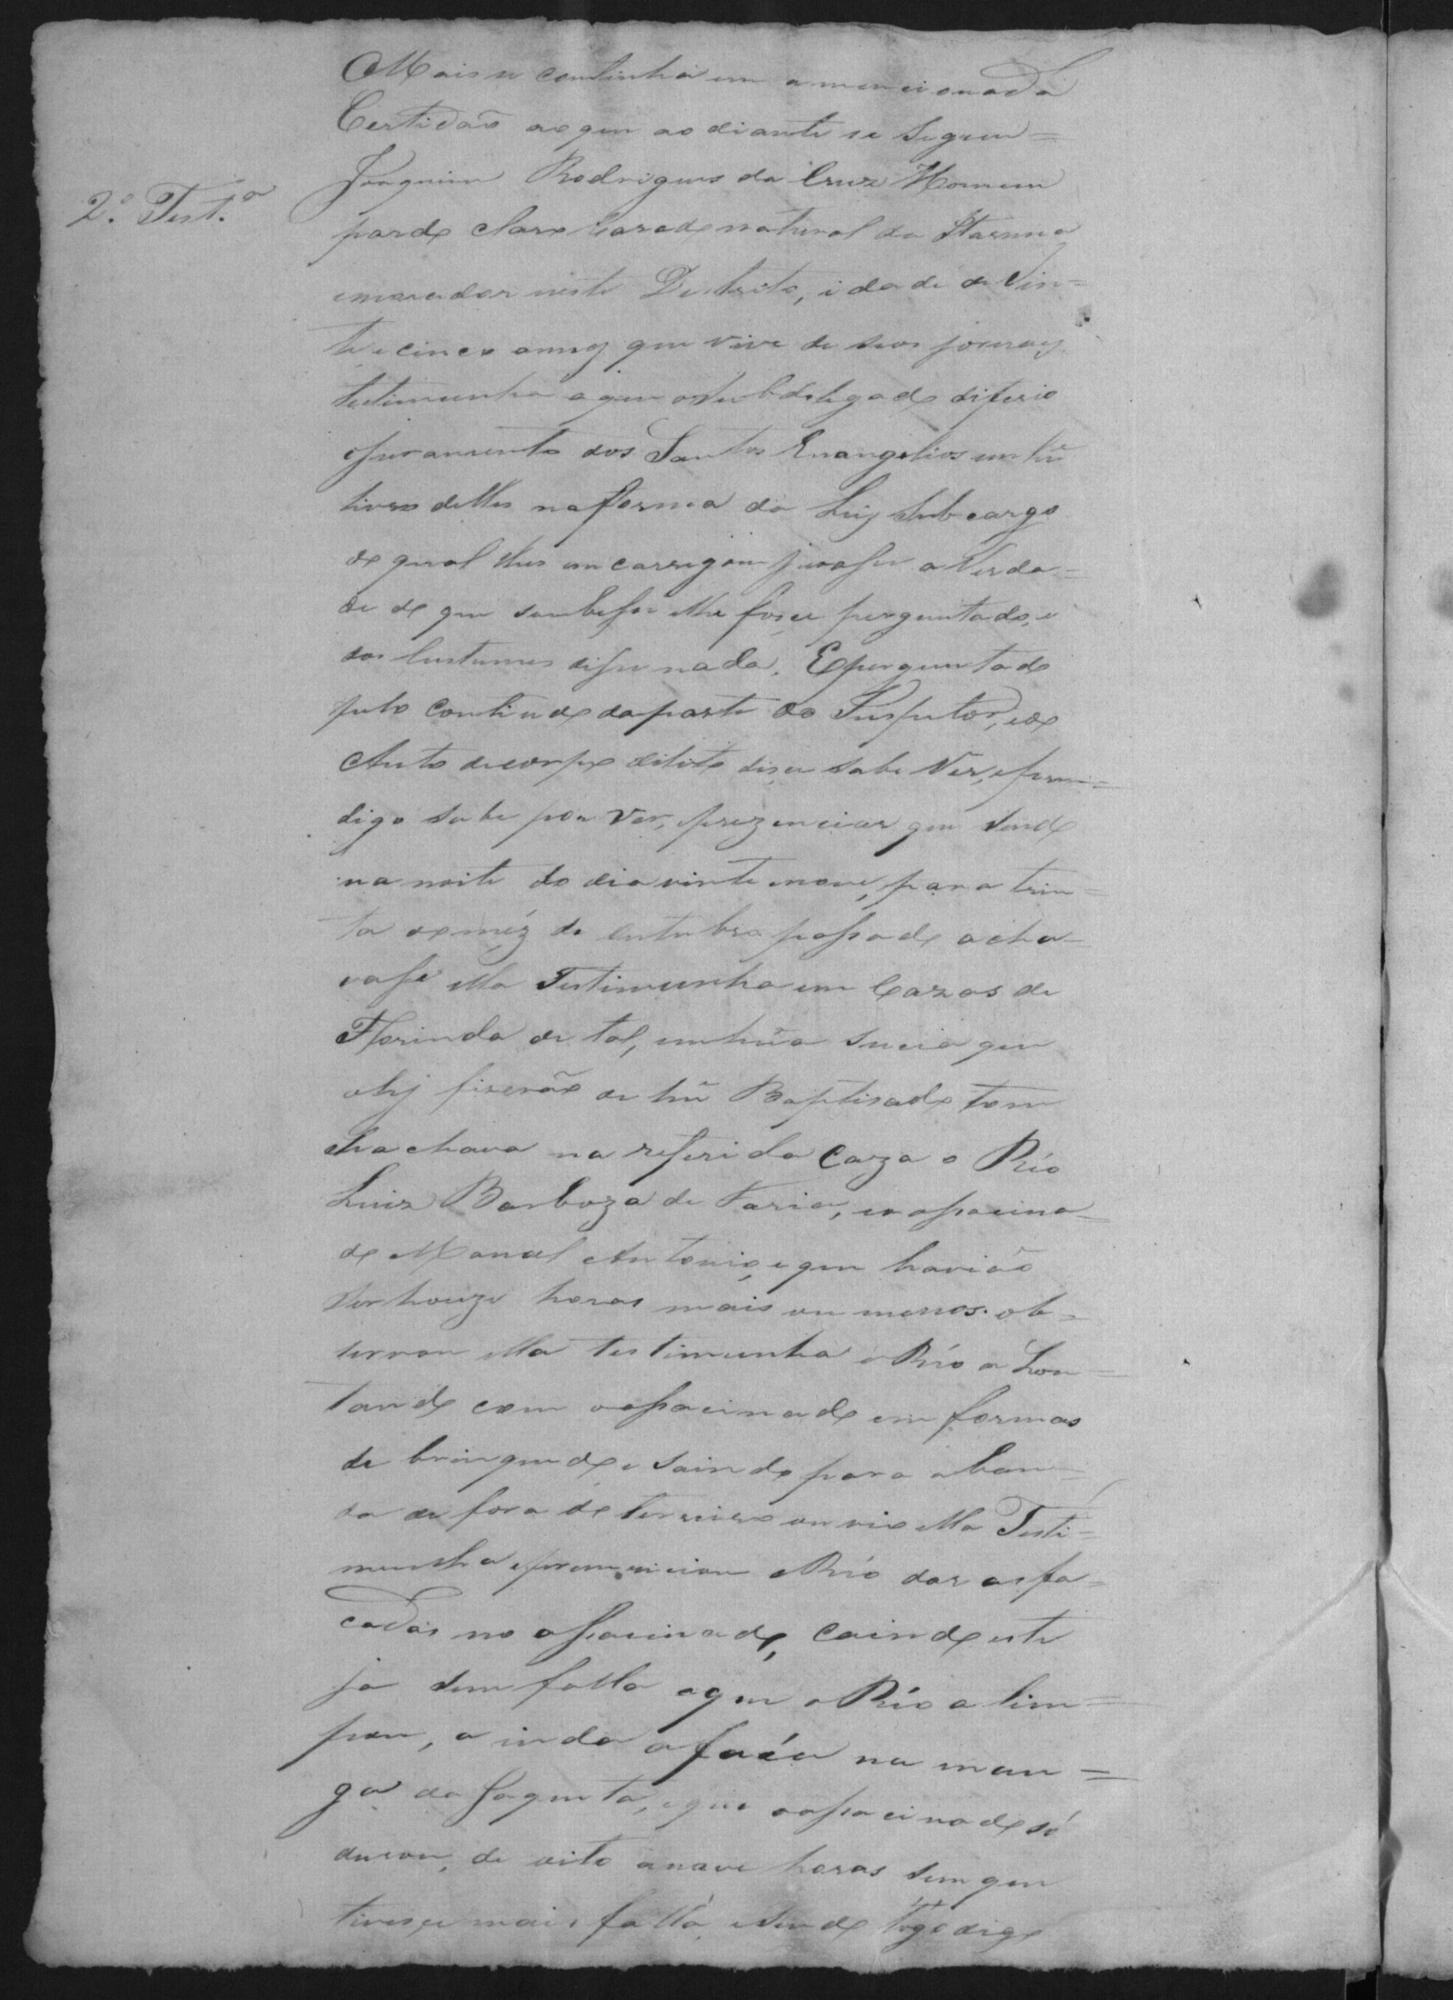 Mais se continha em a mencionada
Certidão ao que ao diante se segue=
2.ª Test.ª
Joaquim Rodrigues da Cruz Homem
pardo claro Cazado natural da
emorador neste Destrito, idade de Vin=
te e cinco annos que vive de seos jornaes
testimunha aquem oSubdelegado diferio
ojuramento dos Santos Evangelios em hũ
livro delles naforma da Ley Sub cargo
do qual lhes encarregou jurase a Verda=
de do que soubese elhe fosce perguntado, e
dos Custumes dise nada. Eperguntado
pelo contiudo daparte do Inspector, edo
Auto decorpo dilito disce sabe Ver,
digo sabe por Ver, eprezenciar que sendo
na noite do dia vinte enove, para trin=
ta do méz de outubro pasado acha=
vase ella Testimunha em Cazas de
Florinda de tal, em hũa sucia que
ahy fizerão de hũ Baptisado tam
bem achava na referida Caza o Réo
Luiz Barboza de Faria, eo asacina=
do Manoel Antonio, e que havião
ser honze horas mais ou menos. ob=
servou ella testimunha o Réo a Lou=
tando com oasacinado em formas
de brinquedo e saindo para aban=
da de fora do terreiro ouvio ella Testi=
munha eprezenciou o Réo dar as fa=
cadas no asacinado, Caindo este
ja sem falla eque o Réo a lim=
pou, a inda afaca na man=
ga da Jaqueta, eque oasacinado só
durou, de oito anove horas sem que
tivesce mais falla, esendo logo digo